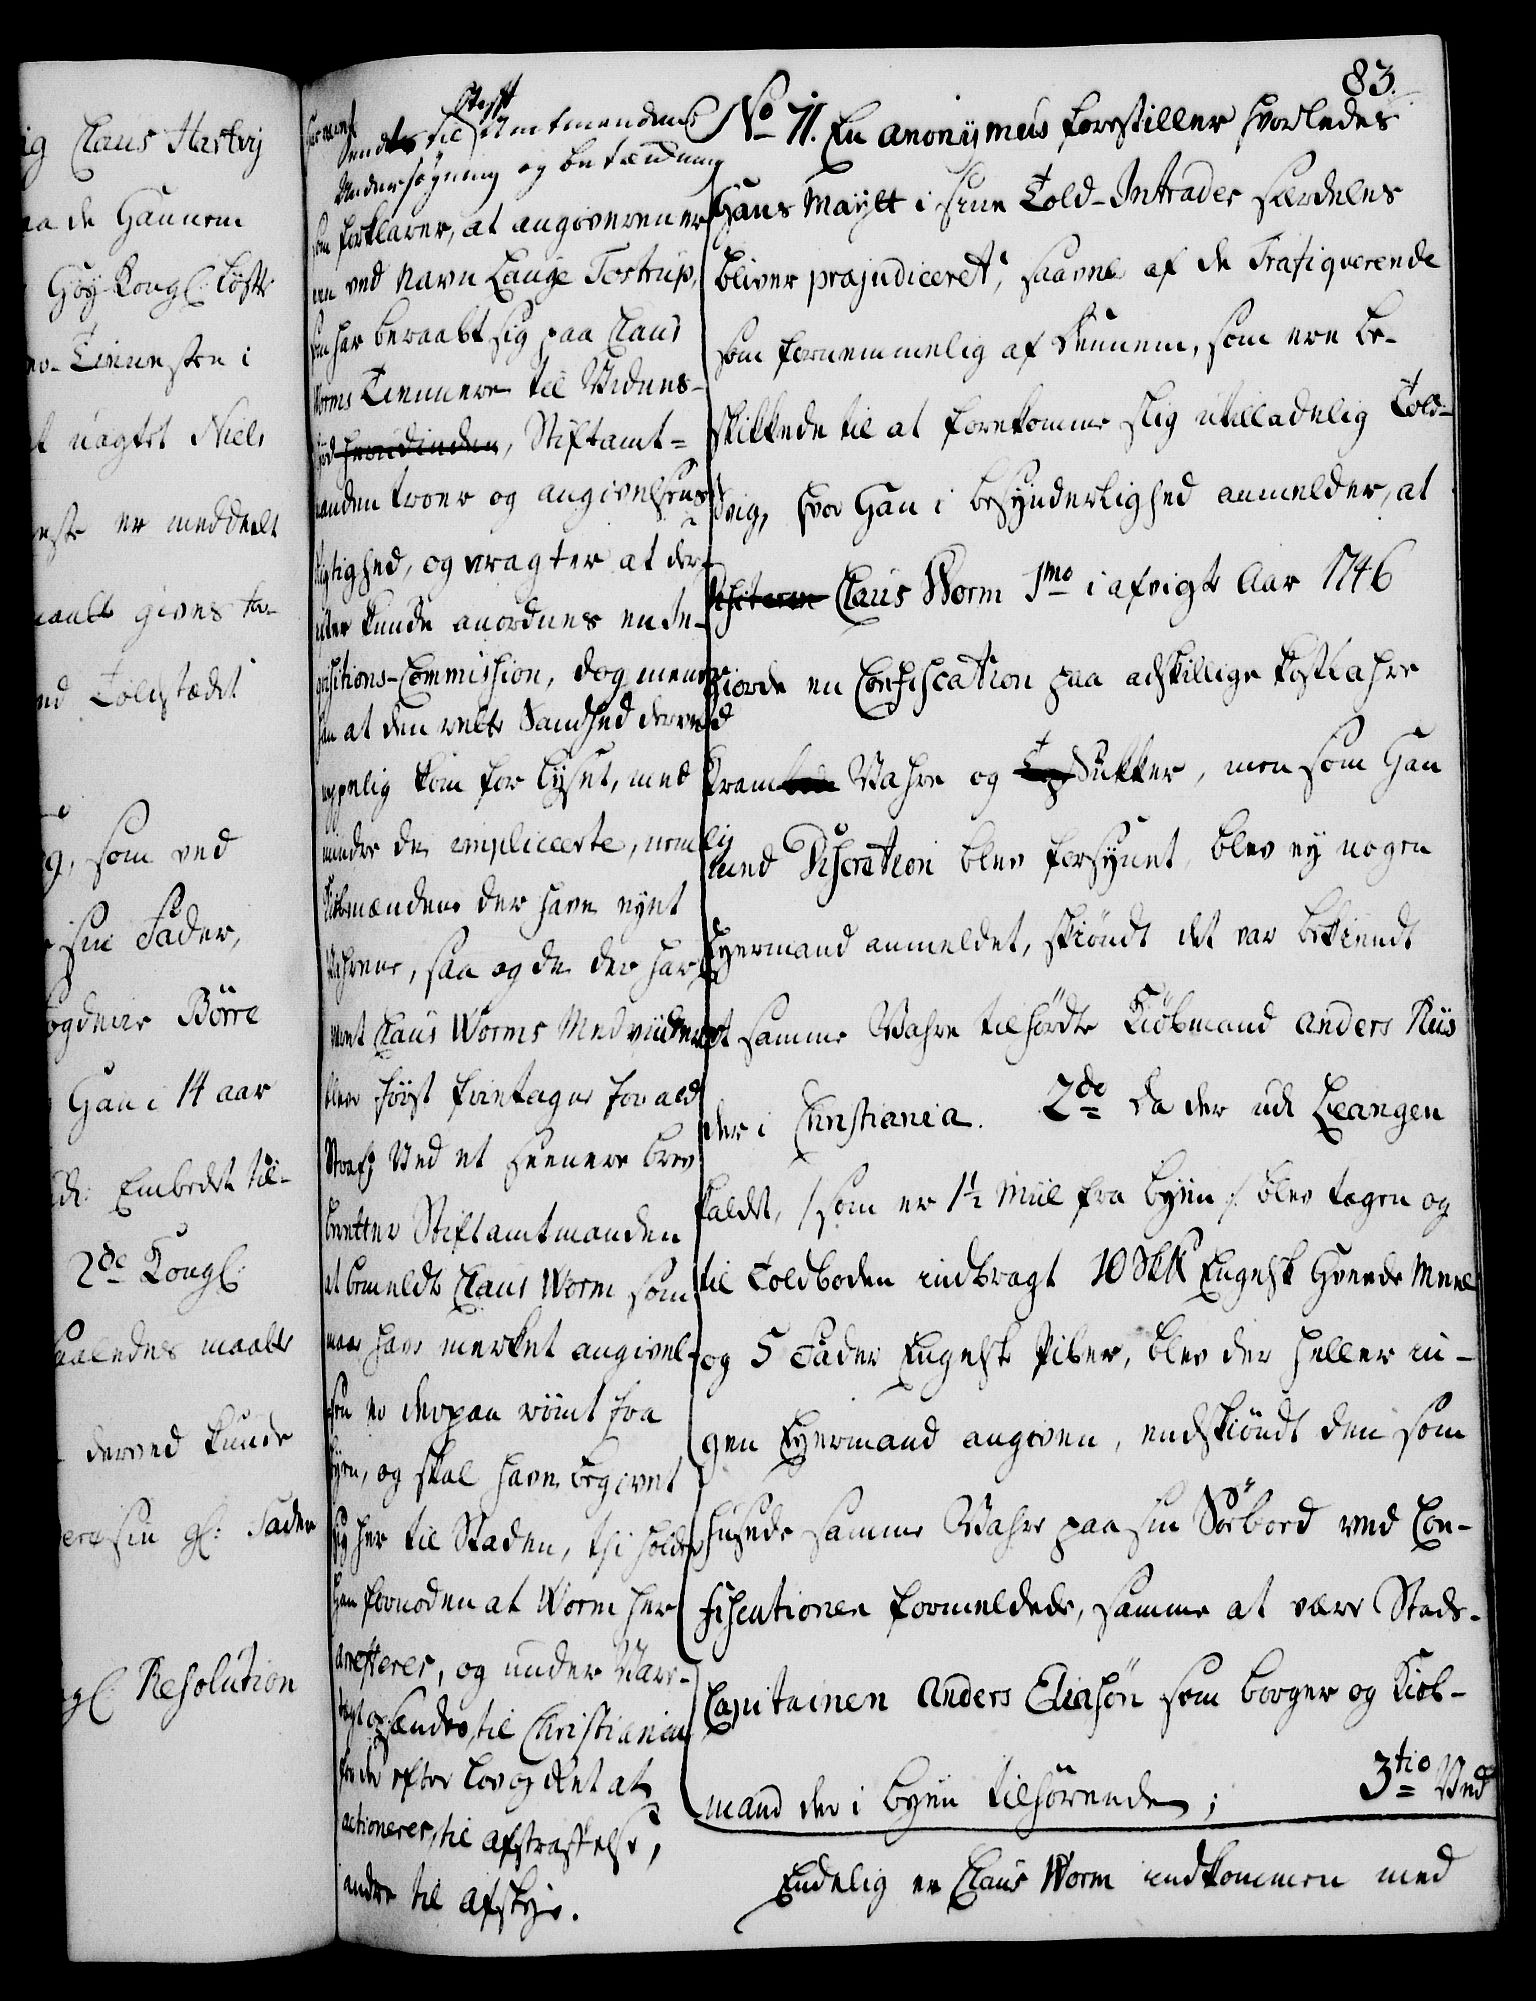 83.
ig Claus Hartvig
paa de Hannem
Høy Kongl: løfte
Tienesten i
uagtet Niels
er meddeelt
gives
ved Toldstædet
som ved
sin Fader,
Børre
Han i 14 aar
Embedet til-
2de Kongl:
saaledes maatte
derved kunde
sin gl: Fader
Resolution
Stifft
Sendt til Amtmandens
Undersøgning og betænkning
som forklarer, at angiveren er
een ved Navn Lauge Tostrup,
som har beraabt sig paa Claus
Worms Tiennere til Vidnes-
, Stiftamt-
manden troer og angivelsens
rigtighed, og eragter at der-
efter kunde anordnes en In-
qvisitions-Commission, dog meener
han at den rette Sandhed derved
neppelig kom for lyset, med
mindre de impliceerte, nemlig
Kiøbmændene der have nydt
Vahrene, saa og de der har
været Claus Worms Medviidere
blev først frietagne for ald
Straf; Ved et seenere brev
beretter Stiftamtmanden
at bemeldte Claus Worm som
maae have merket angivel-
sen er derpaa rømt fra
byen, og skal have begivet
sig her til Staden, thi holder
han fornøden at Worm her
arresteres, og under Vare-
tægt opsændes til Christiania
for der efter Lov og Ret at
actioneres, til afstraffelse,
andre til afskye.
No 71. En anonymus forestiller hvorledes
Hans Maytt i sine Told-Intrader særdeles
bliver præjudiceret, saavel af de Trafiqverende
som fornemmelig af dennem, som ere be-
skikkede til at forekomme slig utilladelig Told-
svig, hvor Han i besynderlighed anmelder, at
Visiteren Claus Worm 1mo i afvigte Aar 1746
giorde en Confiscation paa adskillige kostbahre
Kram Vahre og Sukker, men som Han
med Discration blev forsynet, blev ey nogen
Eyermand anmeldet, skiøndt det var bekiendt
at samme Vahre tilhørdte Kiøbmand Anders Riis
der i Christiania. 2de da der udi Leangen
kaldet, /: som er 1½ Miil fra byen :/ blev tagen og
til Toldboden indbragt 10 Skk Engelsk Hveede Meel
og 5 Fader Engelsk Piber, blev der heller in-
gen Eyermand angiven, endskiøndt den som
husede samme Vahre paa sin Søebord ved Con-
fiscationen formeldede, samme at være Stads-
Capitainen Anders Eliasøn som borger og Kiøb-
mand der i byen tilhørende; 3tio Ved
Endelig er Claus Worm indkommen med